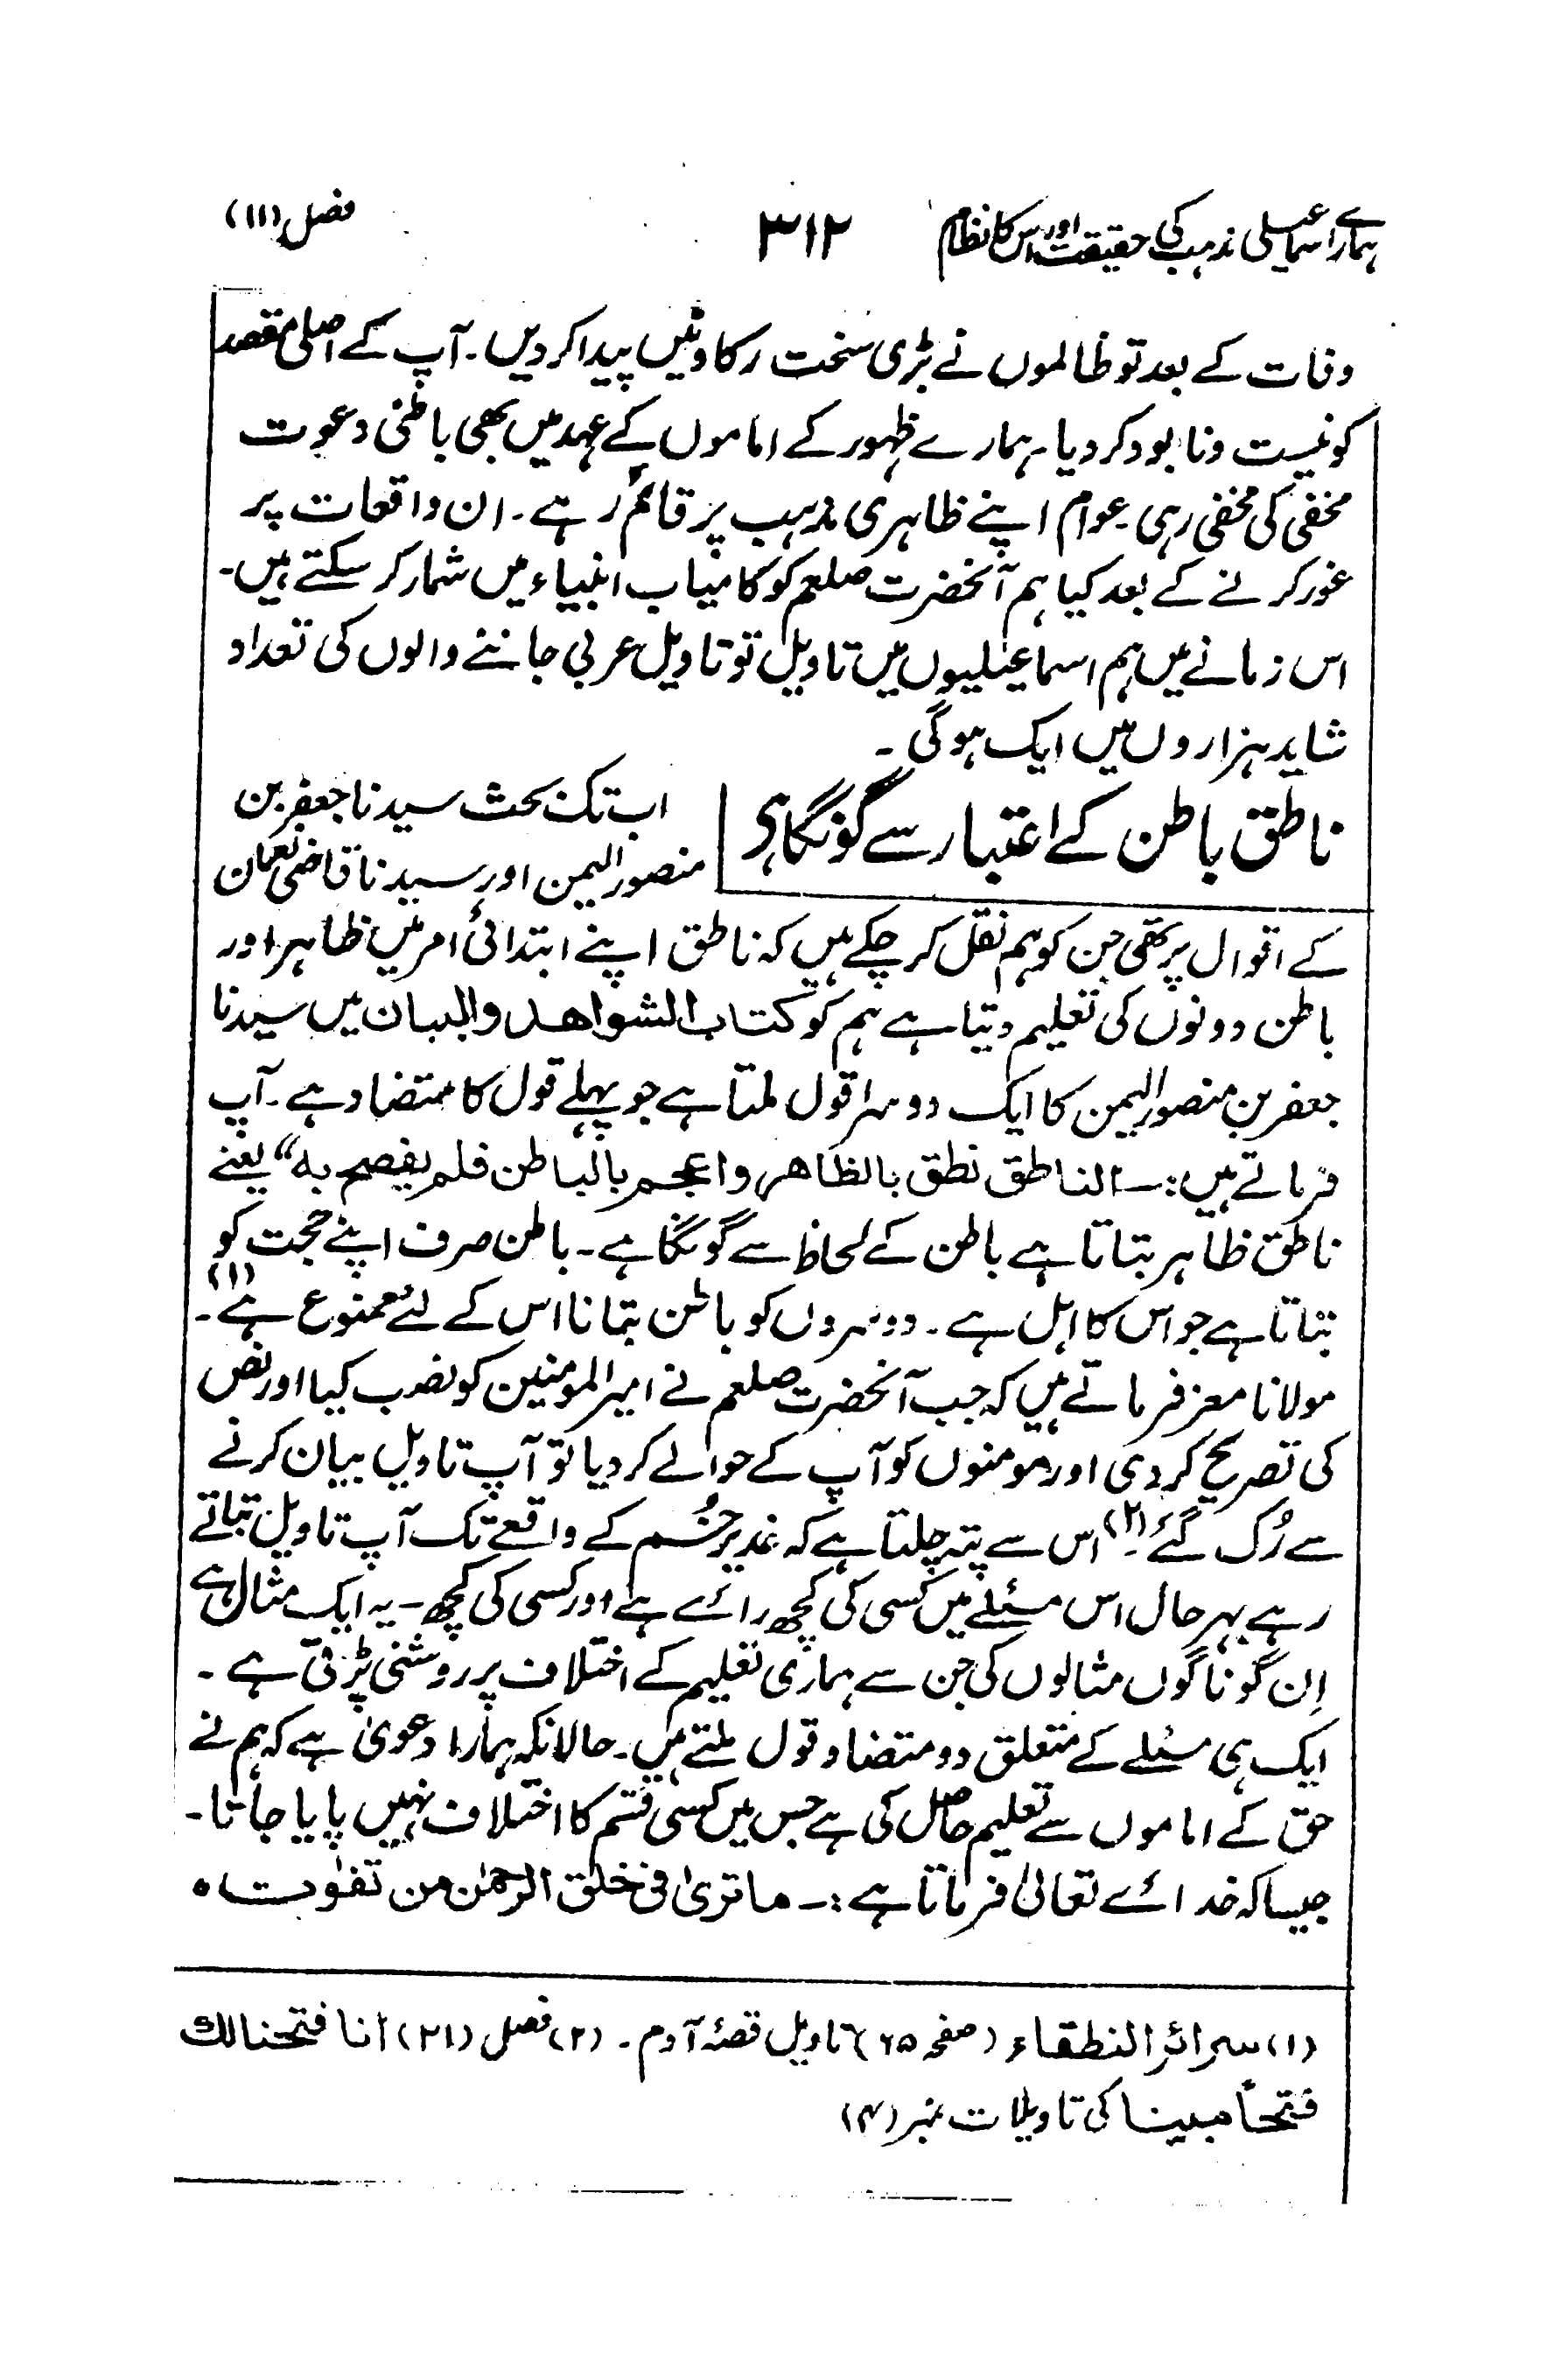 ہمارے اسماعیلی مذہب کی حقیقت اور اس کا نظام ۳۱۲ فصل (۱۱)
وفات کے بعد تو ظالموں نے بڑی سخت رکاوٹیں پیدا کر دیں۔ آپ کے اصلی مقصد
کو نیست و نابود کر دیا۔ ہمارے ظہور کے اماموں کے عہد میں بھی باطنی دعوت
مخفی کی مخفی رہی۔ عوام اپنے ظاہری مذہب پر قائم رہے۔ ان واقعات پر
غور کرنے کے بعد کیا ہم آنحضرت صلعم کو کامیاب انبیاء میں شمار کر سکتے ہیں۔
اس زمانے میں ہم اسماعیلیوں میں تاویل تو تاویل عربی جاننے والوں کی تعداد
شاید ہزاروں میں ایک ہوگی۔
ناطق باطن کے اعتبار سے گونگا ہی
اب تک بحث سیدنا جعفر بن
منصور الیمن اور سیدنا قاضی نعمان
کے اقوال پر تھی جن کو ہم نقل کر چکے ہیں کہ ناطق اپنے ابتدائی امر میں ظاہر اور
باطن دونوں کی تعلیم دیتا ہے ہم کو کتاب الشواهد والبیان میں سیدنا
جعفر بن منصور الیمن کا ایک دوسرا قول ملتا ہے جو پہلے قول کا متضاد ہے۔ آپ
فرماتے ہیں :۔ الناطق نطق بالظاهر واعجم بالباطن فلم یفصح به“ یعنے
ناطق ظاہر بتاتا ہے باطن کے لحاظ سے گونگا ہے۔ باطن صرف اپنے حجت کو
بتاتا ہے جو اس کا اہل ہے۔ دوسروں کو باطن بتانا اس کے لئے ممنوع ہے (۱)۔
مولانا معز فرماتے ہیں کہ جب آنحضرت صلعم نے امیر المومنین کو نصب کیا اور نص
کی تصریح کر دی اور مومنوں کو آپ کے حوالے کر دیا تو آپ تاویل بیان کرنے
سے رُک گئے۔ (۲) اس سے پتہ چلتا ہے کہ غدیر خُم کے واقعے تک آپ تاویل بتاتے
رہے بہر حال اس مسئلے میں کسی کی کچھ رائے ہے اور کسی کی کچھ۔ یہ ایک مثال ہے
اِن گوناگوں مثالوں کی جن سے ہماری تعلیم کے اختلاف پر روشنی پڑتی ہے۔
ایک ہی مسئلے کے متعلق دو متضاد قول ملتے ہیں۔ حالانکہ ہمارا دعویٰ ہے کہ ہم نے
حق کے اماموں سے تعلیم حاصل کی ہے جس میں کسی قسم کا اختلاف نہیں پایا جاتا۔
جیسا کہ خدائے تعالیٰ فرماتا ہے :۔ ما تریٰ فی خلق الرحمٰن من تفٰوت ہ
(۱) سرائر النطقاء (صفحہ ۲۵) تاویل قصۂ آدم۔ (۲) فصل (۲۱) انا فتحنا لك
فتحاً مبینا کی تاویلات نمبر (۴)